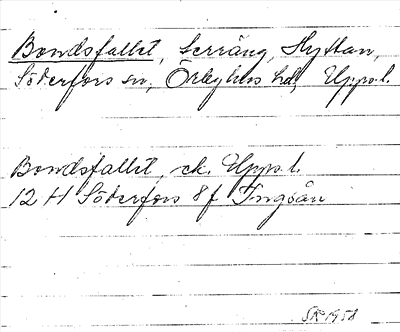 Bondsfallet, terräng, Hyttan,
Söderfors sn, Örbyhus hd, Upps.l.
Bondsfallet, ek. Upps.l.
12 H Söderfors 8f Ingsån
SR 1958